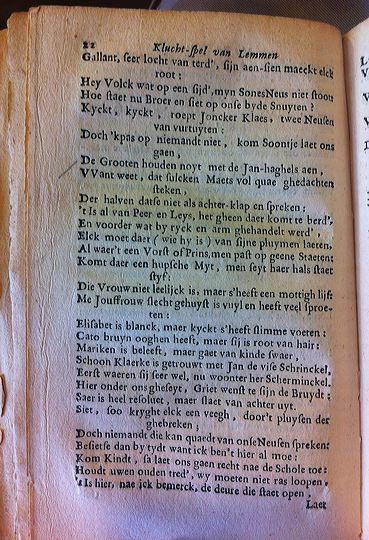 22 Klucht-spel van Lemmen
Gallant, seer locht van terd', sijn aen-sien maeckt elck
root:
Hey Volck wat op een sijd', myn SonesNeus niet stoot:
Hoe staet nu Broer en siet op onse byde Snuyten?
Kyckt, kyckt, roept Joncker Klaes, twee Neusen
van vurtuyten:
Doch 'kpas op niemandt niet, kom Soontje laet ons
gaen,
De Grooten houden noyt met de Jan-haghels aen,
VVant weet, dat sulcken Maets vol quae ghedachten
steken,
Der halven datse niet als achter-klap en spreken:
't Is al van Peer en Leys, het gheen daer komt te berd',
En voorder wat by ryck en arm ghehandelt werd',
Elck moet daer (wie hy is) van sijne pluymen laeten,
Al waer't een Vorst of Prins, men past op geene Staeten:
Komt daer een hupsche Myt, men seyt haer hals staet
styf:
Die Vrouw niet leelijck is, maer s'heeft een mottigh lijf:
Me Jouffrouw slecht gehuyst is vuyl en heeft veel sproe-
ten:
Elisabet is blanck, maer kyckt s'heeft slimme voeten:
Cato bruyn ooghen heeft, maer sij is root van hair:
Mariken is beleeft, maer gaet van kinde swaer,
Schoon Klaerke is getrouwt met Jan de vise Schrinckel,
Eerst waeren sij seer wel, nu woonter het Scherminckel.
Hier onder ons gheseyt, Griet wenst te sijn de Bruydt:
Saer is heel resoluet, maer slaet van achter uyt.
Siet, soo kryght elck een veegh, door't pluysen der
ghebreken;
Doch niemandt die kan quaedt van onseNeusen spreken:
Besietse dan by tydt want ick ben't hier al moe:
Kom Kindt, sa laet ons gaen recht nae de Schole toe:
Houdt uwen ouden tred', wy moeten niet ras loopen,
't Is hier, nae ick bemerck, de deure die staet open,
Laet